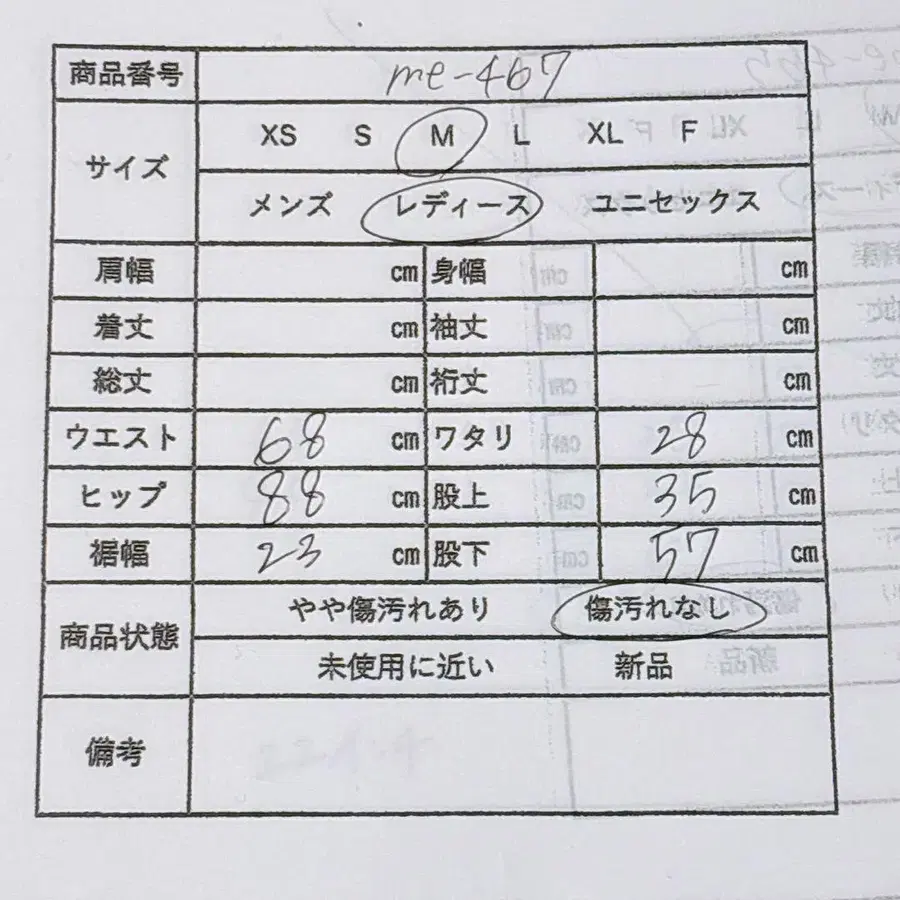 商品番号 me-467
サイズ XS S M L XL F
メンズ レディース ユニセックス
肩幅 cm 身幅 cm
着丈 cm 袖丈 cm
総丈 cm 裄丈 cm
ウエスト 68 cm ワタリ 28 cm
ヒップ 88 cm 股上 35 cm
裾幅 23 cm 股下 57 cm
商品状態 やや傷汚れあり 傷汚れなし
未使用に近い 新品
備考